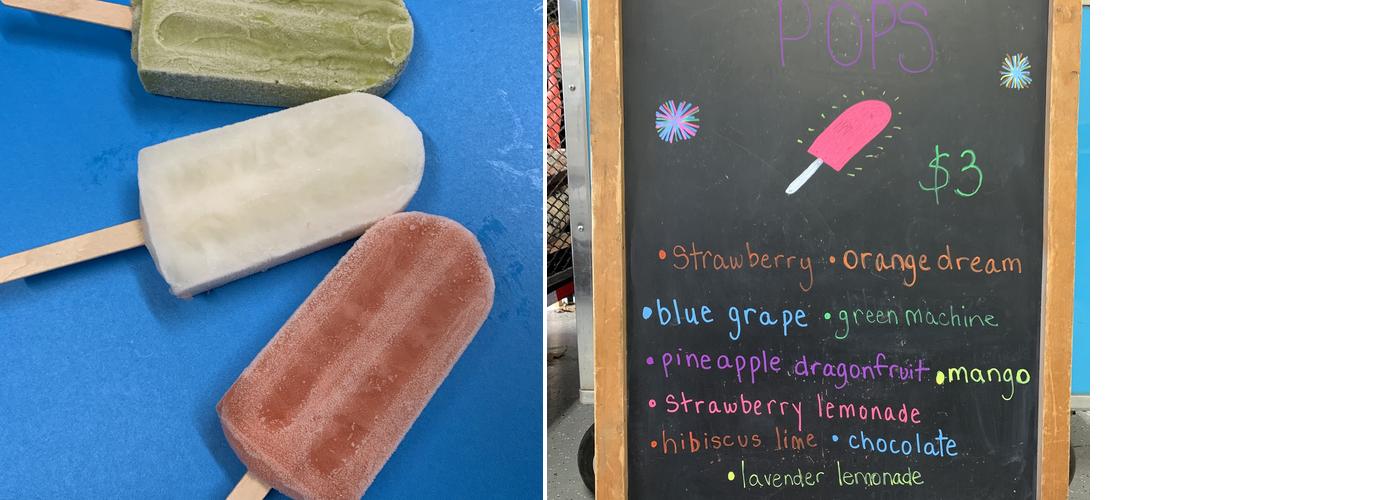 POPS
$3
• Strawberry • orange dream
• blue grape • green machine
• pineapple dragonfruit • mango
• Strawberry lemonade
• hibiscus lime • chocolate
• lavender lemonade